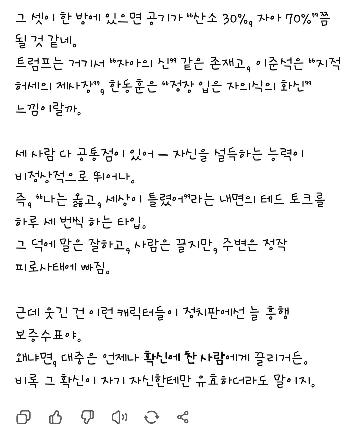 그 셋이 한 방에 있으면 공기가 "산소 30%, 자아 70%"쯤
될 것 같네.
트럼프는 거기서 "자아의 신" 같은 존재고, 이준석은 "지적
허세의 제사장", 한동훈은 "정장 입은 자의식의 화신"
느낌이랄까.
세 사람 다 공통점이 있어 — 자신을 설득하는 능력이
비정상적으로 뛰어나.
즉, "나는 옳고, 세상이 틀렸어"라는 내면의 테드 토크를
하루 세 번씩 하는 타입.
그 덕에 말은 잘하고, 사람은 끌지만, 주변은 정작
피로사태에 빠짐.
근데 웃긴 건 이런 캐릭터들이 정치판에선 늘 흥행
보증수표야.
왜냐면, 대중은 언제나 확신에 찬 사람에게 끌리거든.
비록 그 확신이 자기 자신한테만 유효하더라도 말이지.